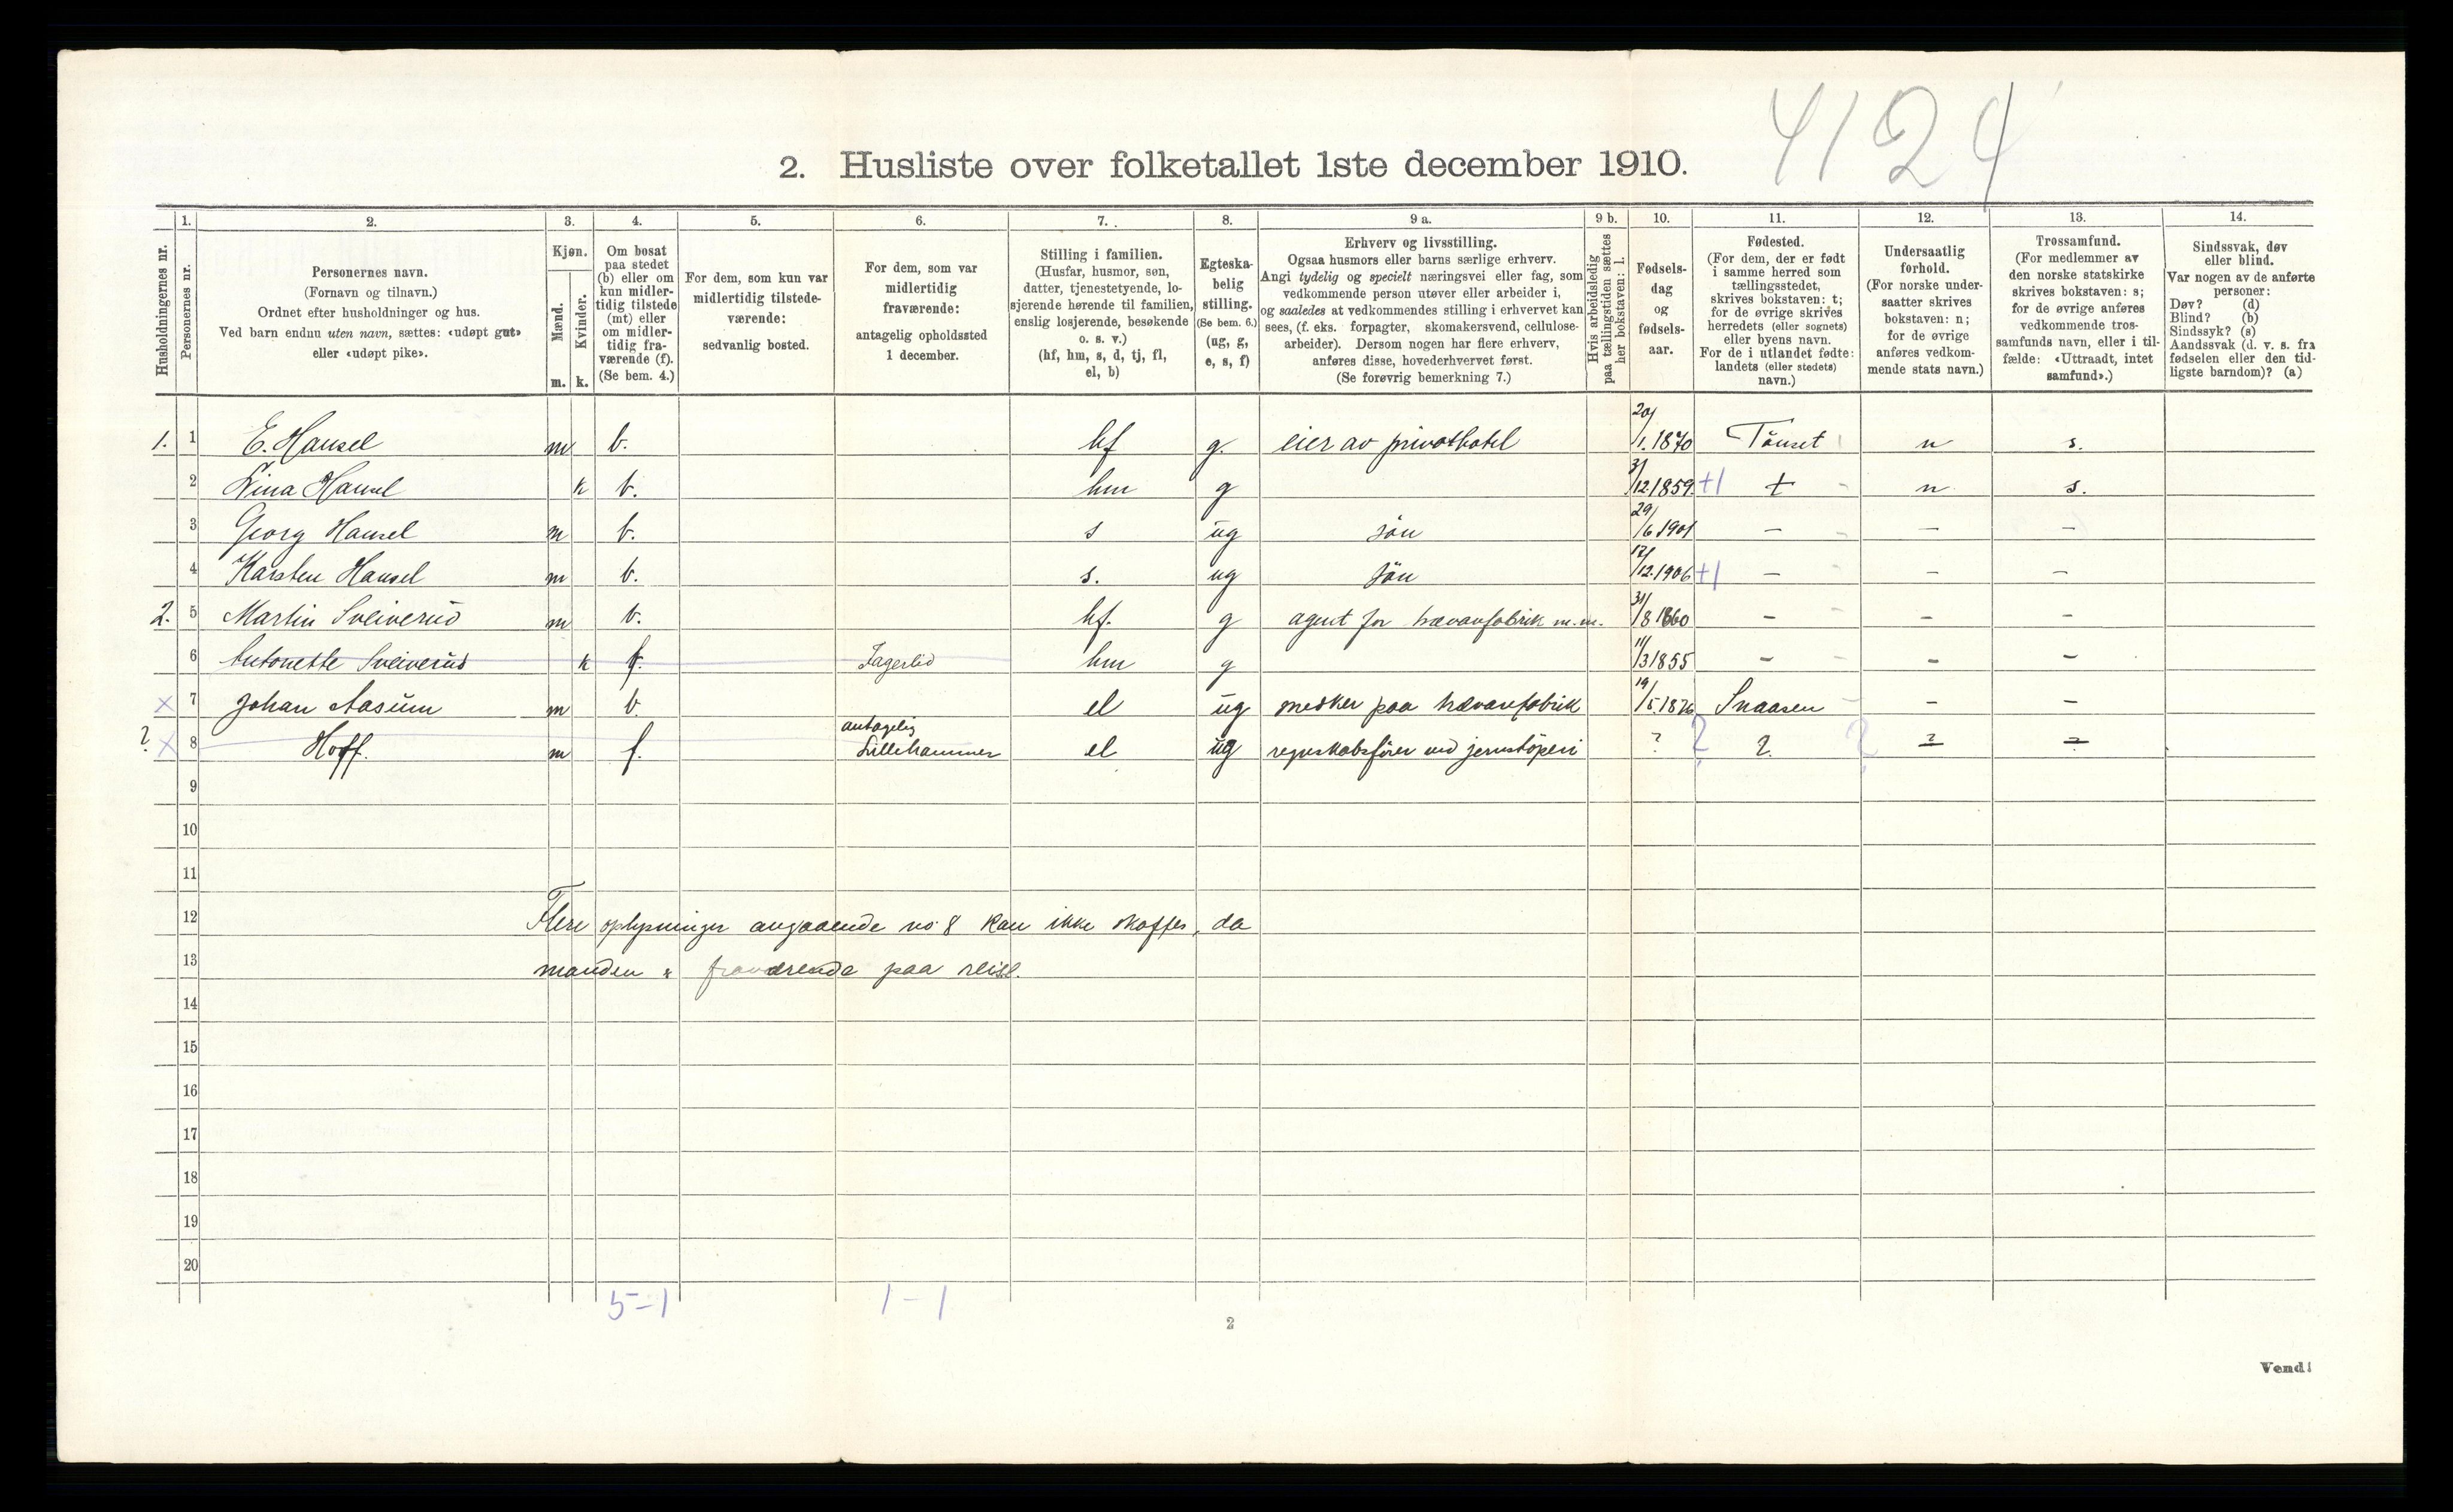 4124
2. Husliste over folketallet 1ste december 1910.
Husholdningernes nr.
1.
Personernes nr.
2.
Personernes navn.
(Fornavn og tilnavn.)
Ordnet efter husholdninger og hus.
Ved barn endnu uten navn, sættes: «udøpt gut»
eller «udøpt pike».
3.
Kjøn.
Mænd.
Kvinder.
m. k.
4.
Om bosat
paa stedet
(b) eller om
kun midler-
tidig tilstede
(mt) eller
om midler-
tidig fra-
værende (f).
(Se bem. 4.)
5.
For dem, som kun var
midlertidig tilstede-
værende:
sedvanlig bosted.
6.
For dem, som var
midlertidig
fraværende:
antagelig opholdssted
1 december.
7.
Stilling i familien.
(Husfar, husmor, søn,
datter, tjenestetyende, lo-
sjerende hørende til familien,
enslig losjerende, besøkende
o. s. v.)
(hf, hm, s, d, tj, fl,
el, b)
8.
Egteska-
belig
stilling.
(Se bem. 6.)
(ug, g,
e, s, f)
9 a.
Erhverv og livsstilling.
Ogsaa husmors eller barns særlige erhverv.
Angi tydelig og specielt næringsvei eller fag, som
vedkommende person utøver eller arbeider i,
og saaledes at vedkommendes stilling i erhvervet kan
sees, (f. eks. forpagter, skomakersvend, cellulose-
arbeider). Dersom nogen har flere erhverv,
anføres disse, hovederhvervet først.
(Se forøvrig bemerkning 7.)
9 b.
Hvis arbeidsledig
paa tællingstiden sættes
her bokstaven: l.
10.
Fødsels-
dag
og
fødsels-
aar.
11.
Fødested.
(For dem, der er født
i samme herred som
tællingsstedet,
skrives bokstaven: t;
for de øvrige skrives
herredets (eller sognets)
eller byens navn.
For de i utlandet fødte:
landets (eller stedets)
navn.)
12.
Undersaatlig
forhold.
(For norske under-
saatter skrives
bokstaven: n;
for de øvrige
anføres vedkom-
mende stats navn.)
13.
Trossamfund.
(For medlemmer av
den norske statskirke
skrives bokstaven: s;
for de øvrige anføres
vedkommende tros-
samfunds navn, eller i til-
fælde: «Uttraadt, intet
samfund».)
14.
Sindssvak, døv
eller blind.
Var nogen av de anførte
personer:
Døv? (d)
Blind? (b)
Sindssyk? (s)
Aandssvak (d. v. s. fra
fødselen eller den tid-
ligste barndom)? (a)
1. 1 E. Hansel m b. hf g. eier av privathotel 20/1. 1870 Tönset n s.
2 Nina Hansel k b. hm g 31/12. 1859. +1 t - n s.
3 Georg Hansel m b. s ug sön 29/6 1901 - - - -
4 Karsten Hansel m b. s. ug sön 17/12. 1906 +1 - - - -
2. 5 Martin Sveiverud m b. hf. g agent for trævarefabrik m.m. 31/8 1860 - - - -
6 Antonette Sveiverud k f. Fagerlid hm g 11/3 1855 - - - -
x 7 Johan Aasum m b. el ug snedker paa trævarefabrik 19/5. 1876 Snaasen - - -
? x 8 Hoff. m f. antagelig Lillehammer el ug regnskabsförer ved jernstöperi ? ? ? ? ? ?
9
10
11
12 Flere oplysninger angaaende no 8 kan ikke skaffes, da
13 manden er fraværende paa reise.
14
15
16
17
18
19
20
5-1 1-1
2
Vend!